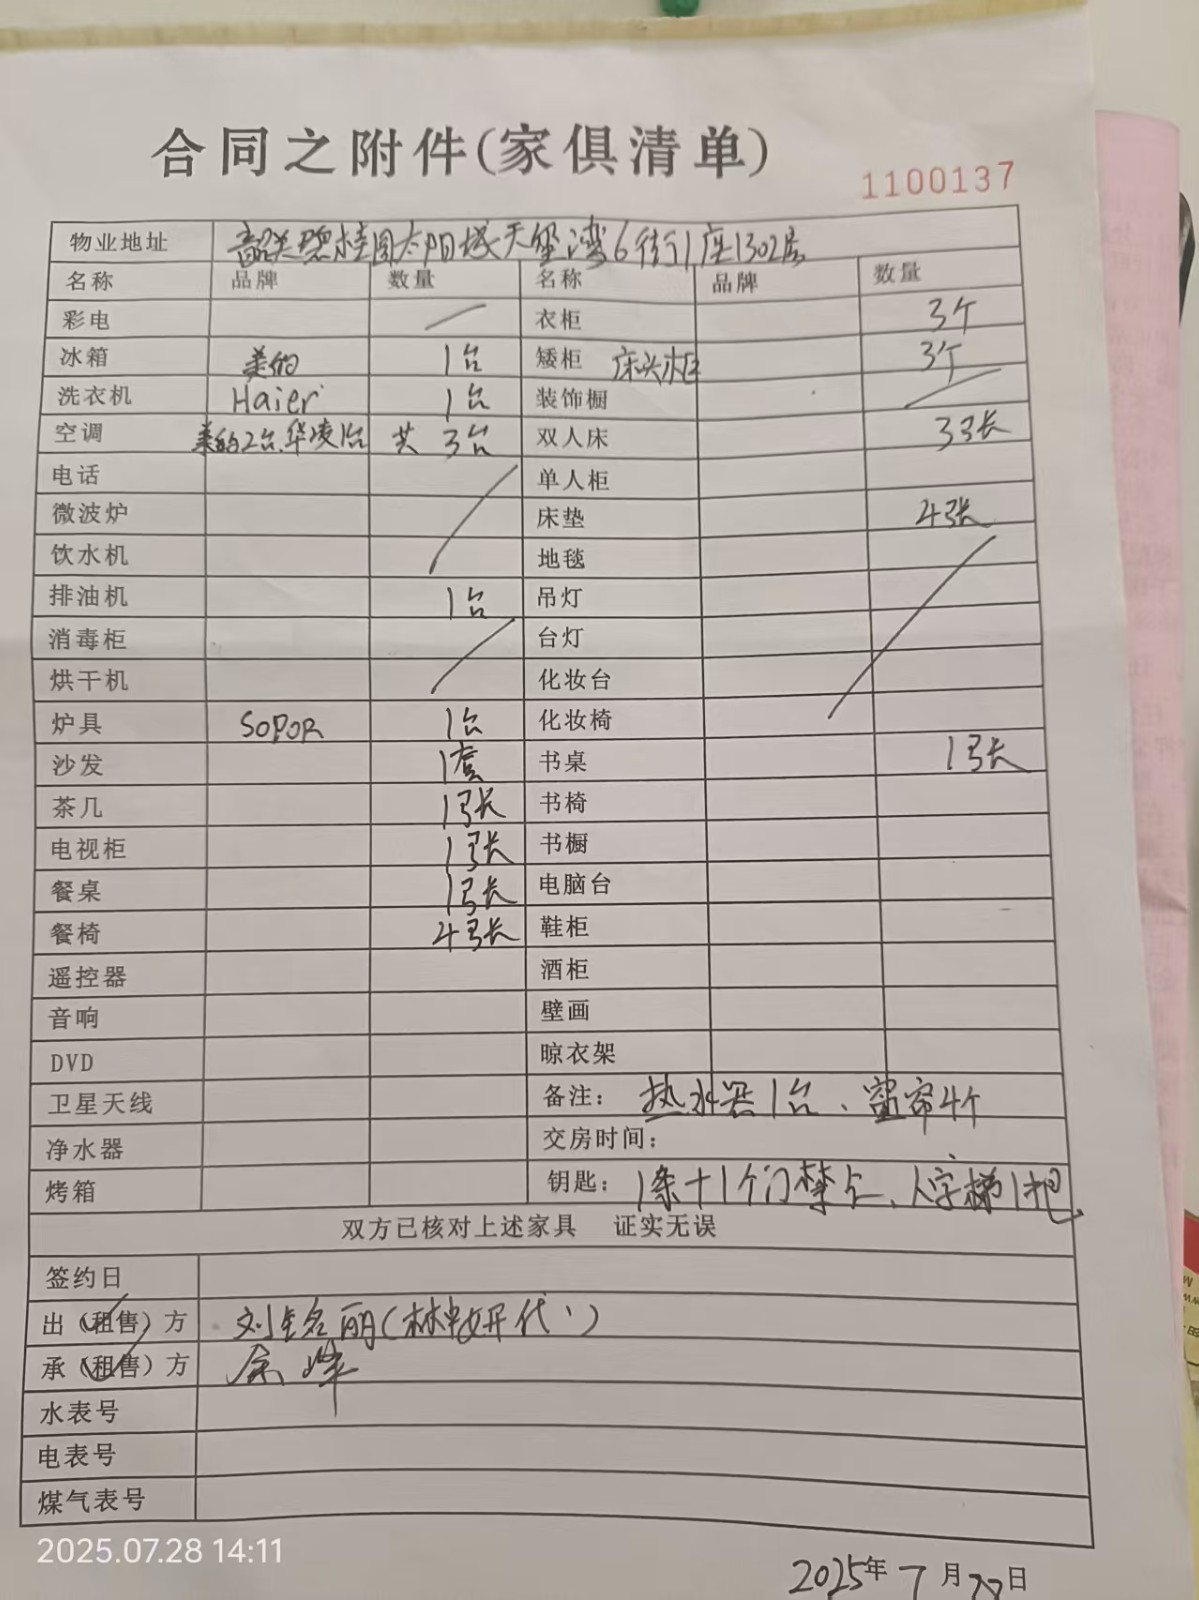 合同之附件(家俱清单)
1100137
物业地址 韶关碧桂园太阳城天玺湾6街1座1302房
名称 品牌 数量 名称 品牌 数量
彩电 衣柜 3个
冰箱 美的 1台 矮柜 床头柜 3个
洗衣机 Haier 1台 装饰橱
空调 美的2台.华凌1台 共3台 双人床 3张
电话 单人柜
微波炉 床垫 4张
饮水机 地毯
排油机 1台 吊灯
消毒柜 台灯
烘干机 化妆台
炉具 SOPOR 1台 化妆椅
沙发 1套 书桌 1张
茶几 1张 书椅
电视柜 1张 书橱
餐桌 1张 电脑台
餐椅 4张 鞋柜
遥控器 酒柜
音响 壁画
DVD 晾衣架
卫星天线 备注: 热水器1台、窗帘4个
净水器 交房时间:
烤箱 钥匙: 1条+1个门禁卡、人字梯1把
双方已核对上述家具 证实无误
签约日
出(租售)方 刘铭丽(林 妍代)
承(租售)方 余
水表号
电表号
煤气表号
2025.07.28 14:11
2025年7月28日